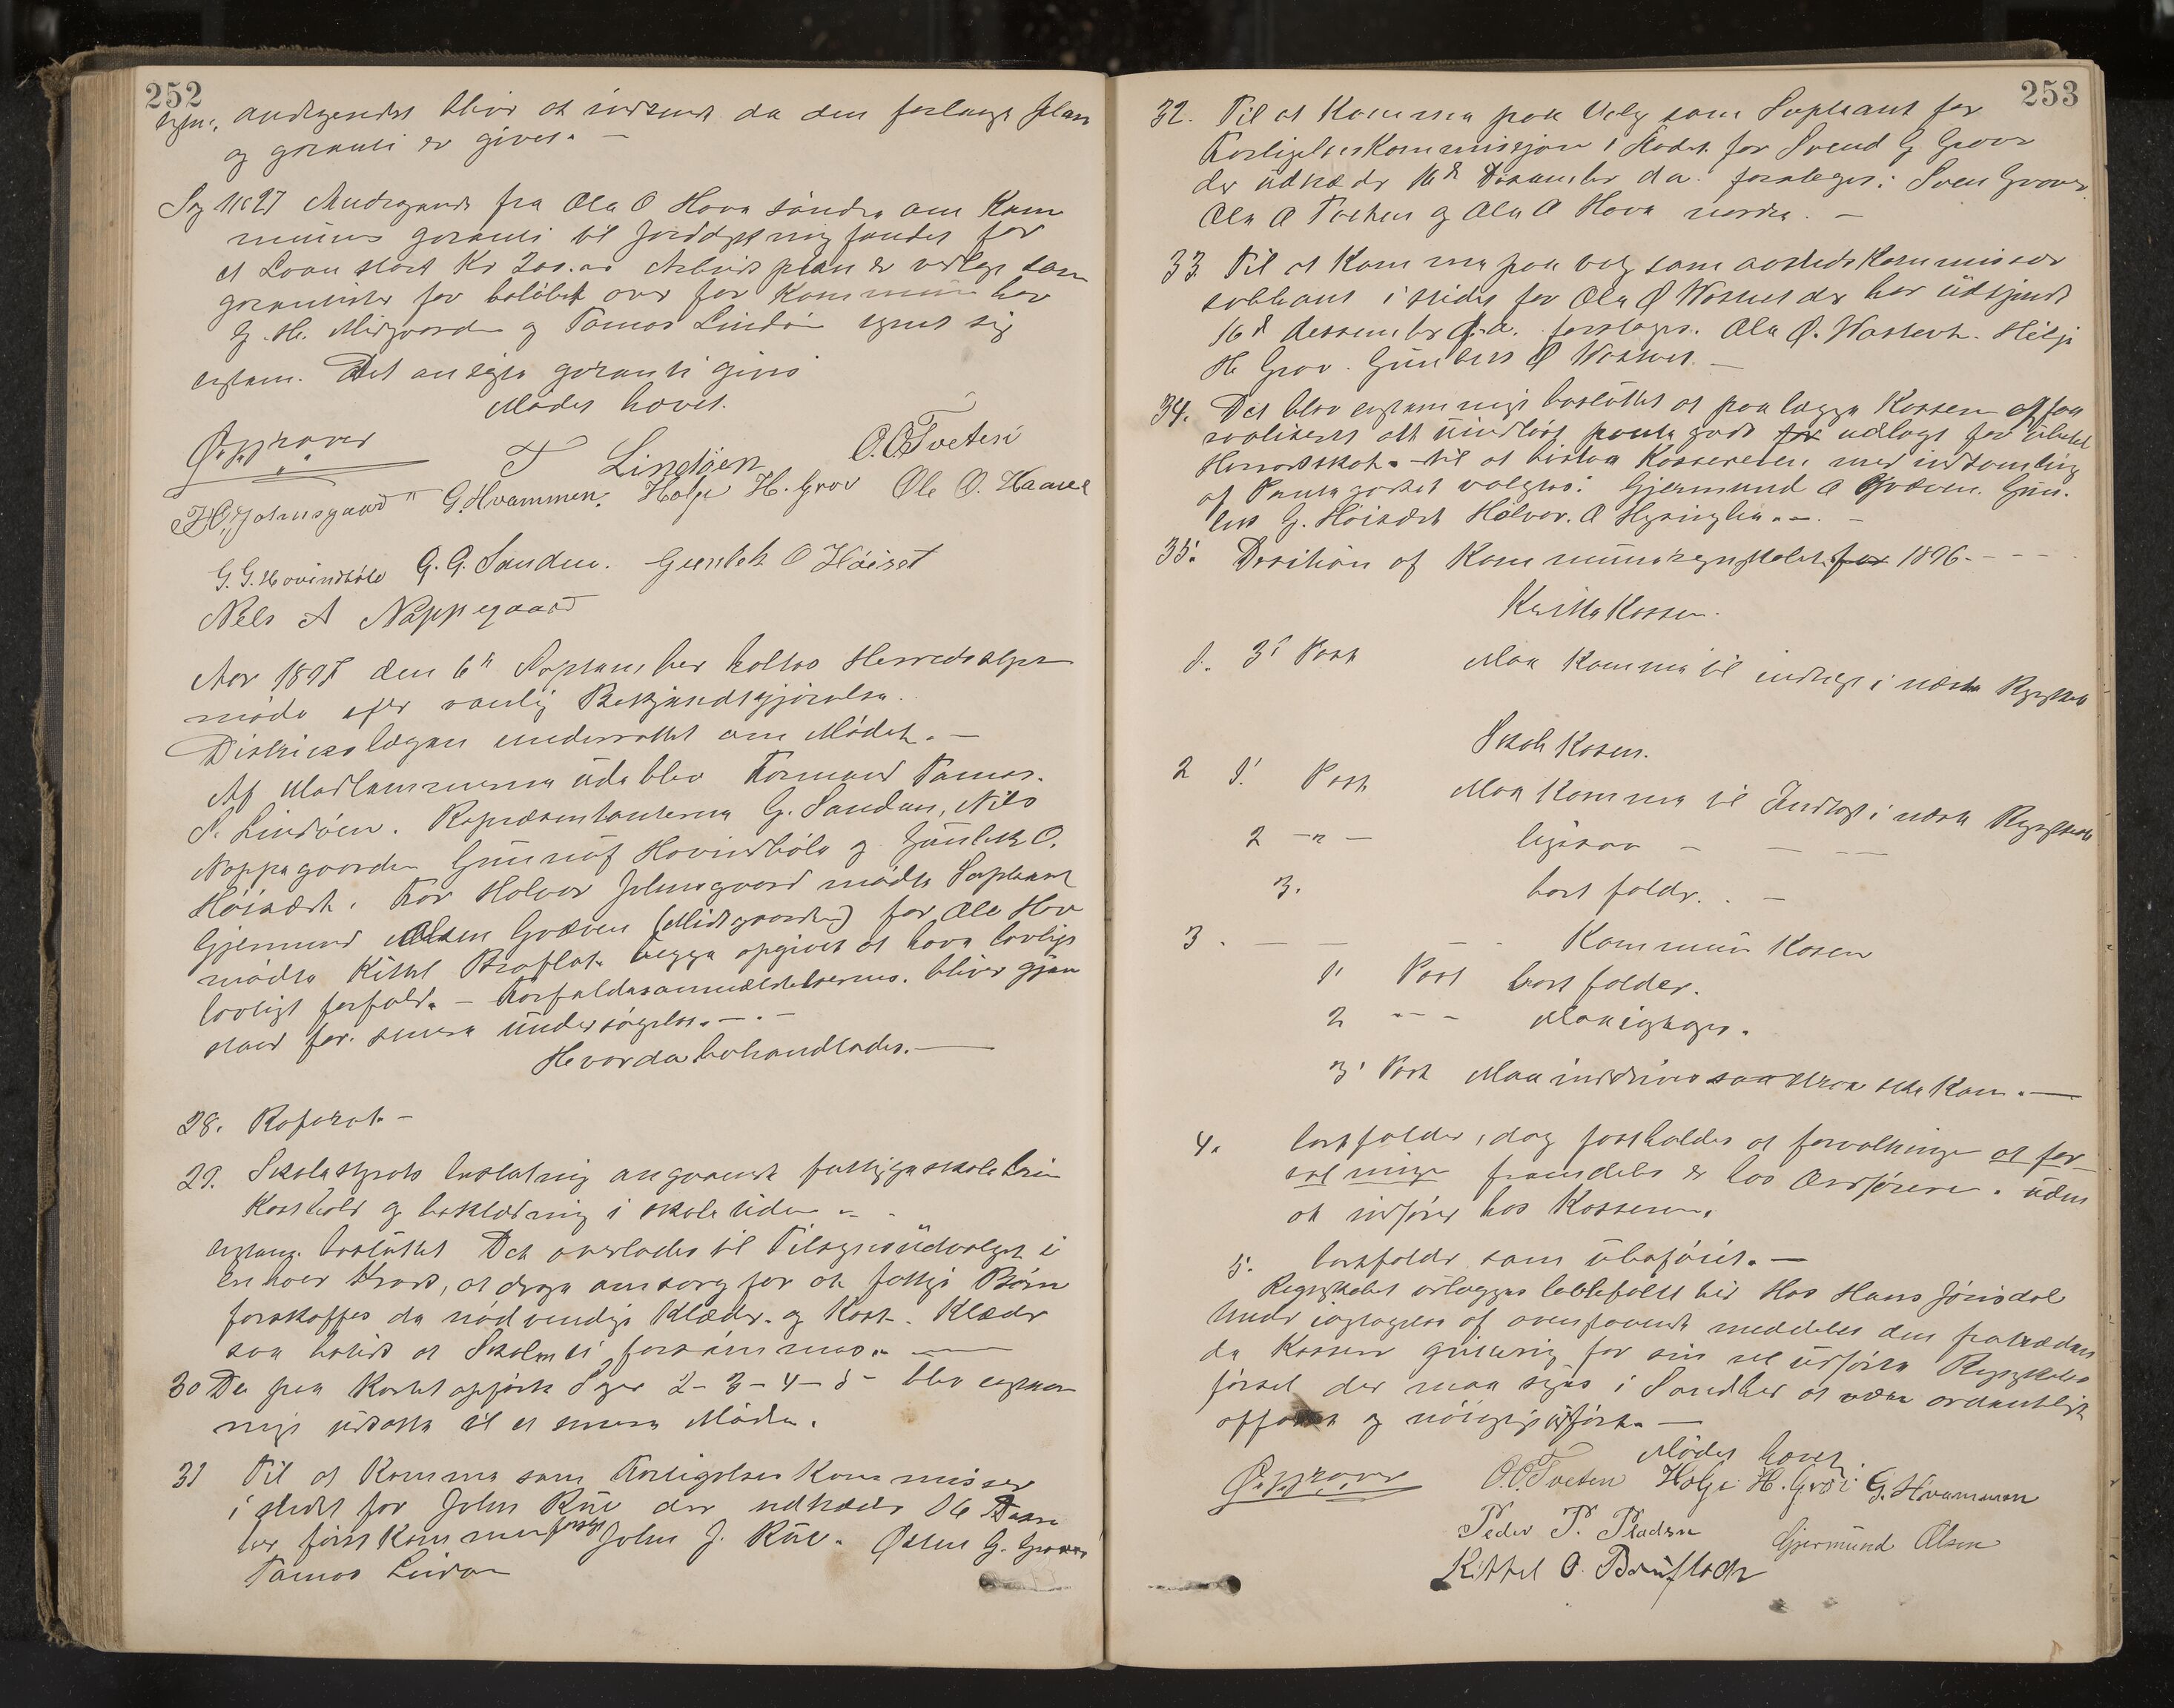 252
andragendet bliver at indsende da den forlangte plan
og garanti er givet. —
Sag No 27 Andragende fra Ola O Hova søndre om Kom
munens garanti til Jorddyrkningsfondet for
et Laan stort Kr 200.00 Arbeidsplan er vedlagt som
garantister for beløbet over for Kommunen har
H. Midgaarden og Tomas Lindøen tegnet sig
Det ansøgte garanti gives
Mødet hævet.
Oprover
T Lindöen O.O. Tveten
H.O. Johnsgaard G. Hvammen. Helge H. Grov Ole O. Haave
G. G. Hovindbøle G. G. Sanden. Gunlek O Höiset
Nels A Noppegaard
Aar 1897 den 6te September holtes Herredsstyre
møde efter vanlig Bekjendtgjørelse.
Distrikslægen underrettet om Mødet. —
Af Medlemmerne udeblev Formand Tomas
Lindöen. Repræsentanterne G. Sanden, Nils
Noppegaarden Gunnuf Hovindbøle og Gunlek O.
Høisæt. For Halvor Johnsgaard mødte Supleant
Gjermund Olsen Gvæven (Midtgaarden) for Ole Hov
mødte Kittel Bruflat begge opgivet at have lovligt
lovligt forfald. — Forfaldsanmeldelserne bliver gjen
stand for senere undersøgelse. —
Hvorda behandledes. —
28. Referat. —
29. Skolestyrets beslutning angaaende fattige skolebørn
Kosthold og beklædning i skoletiden
beslüttet Det overlades til Tilsynsüdvalget i
enhver Kreds, at drage omsorg for at fattige Børn
forskaffes de nødvendige Klæder og Kost. Klæder
saa betids at Skolen ei forsømmes. —
30 De paa Kortet opførte Sager 2 - 3 - 4 - 5 - blev enstem
migt üdsatte til et senere Møde.
31 Til at Komme som Forligelses Kommissær
i stedet for John Rüe der udtræder 16 Desem
ber førstkommende forslages John J. Rüe. Østen G. Grover
Tomas Lindøen
253
32. Til at Komme paa Valg som Supleant for
Forligelses Kommissjon i Stedet for Svend G Grover
der üdtræder 16de Desember d a. foreslages: Sven Grover
Ola A Tveten og Ola A Hova nordre. —
33 Til at Komme paa valg som aastedsKommissær
subleant i stedet for Ola Ø Wostvet der har üdtjent
16de dessember d.a. forslages. Ola Ø. Wostvet. Helje
H Grov. Günleik Ø Wostvet. —
34. Det blev enstemmigt beslüttet at paalægge Kasseren at faa
realiseret alt üindløst pantegods for udlagt for übetalt
Herredsskat. — til at bistaa Kassereren med indsamling
af Pantegodset valgtes: Gjermund O Gvæven. Gün
leik G. Høisæt Halvor. A Hysinglia. —
35. Desisjon af Kommüneregnskabet for 1896. - - -
Kritte Kassen.
1. 3' Post Maa Komme til indtægt i næste Regnskab
Skole Kassen.
2 1' Post Maa Komme til Indtægt i næste Regnskab
2 — " — ligesaa — — —
3. bort falder. . —
3. — — — Kommün Kassen
1' Post bort falder.
2 - - - Maa igtages.
3' Post Maa inddrives saa strax ske Kan. —
4. bortfalder, dog fastholdes at forvaltninge at for
retninge fremdeles er hos Ordføreren. üden
at indføres hos Kassereren.
5. bortfalder som übeføiet. —
Regnskabet udlægges hos Hans Jönsdal
Under iagtagelse af ovenstaaende meddeles den fratrædende
Kasserer qvitering for sin vel üdførte Regnskabs
førsel der maa siges i Sandhed at være ordentligt
affattet og nöiagtigt üdført. —
Mødet hævet
Oprover O.O. Tveten Helge H. Grov G. Hvammen
Peder P. Pladsen Gjermund Olsen
Kittel O. Brüflodt